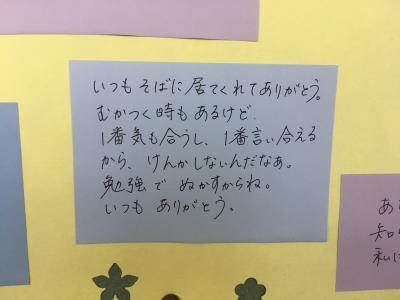 いつもそばに居てくれてありがとう。
むかつく時もあるけど、
1番気も合うし、1番言い合える
から、けんかしないんだなぁ。
勉強で ぬかすからね。
いつも ありがとう。
あ
知
私に